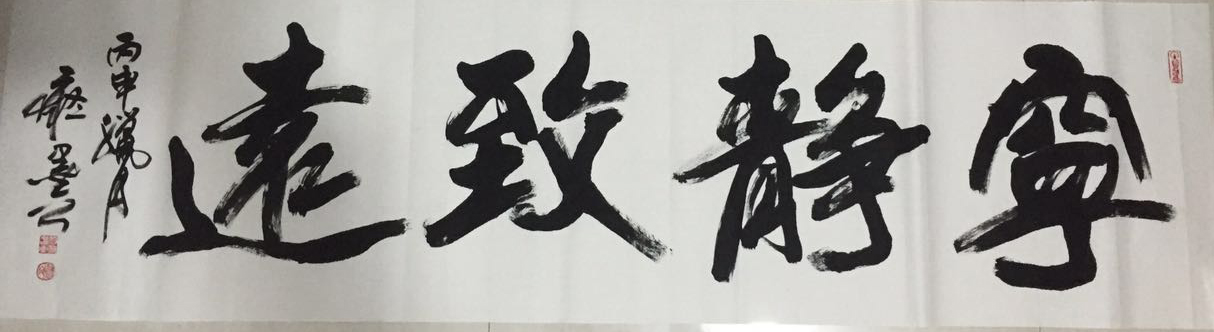 寧靜致遠
丙申臘月